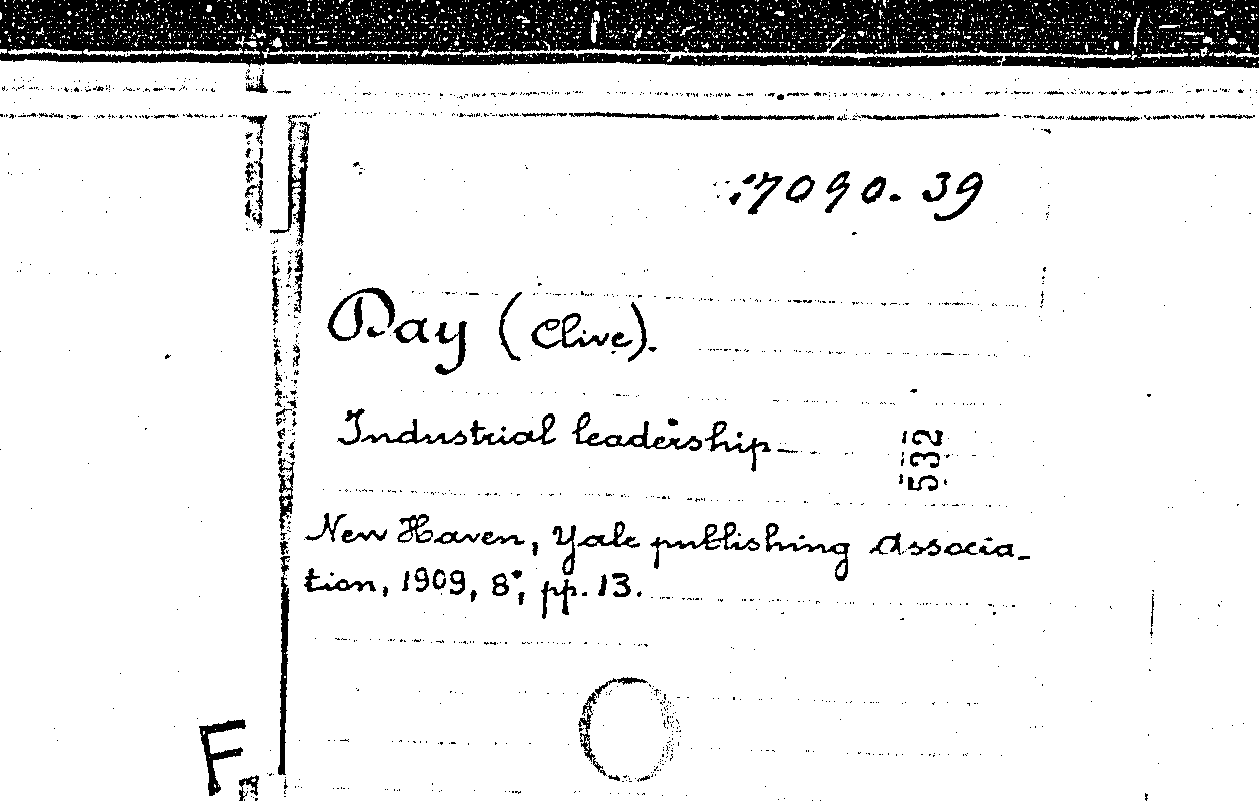 17090.39
Day (Clive).
Industrial leadership
532
New Haven, Yale publishing Associa-
tion, 1909, 8°, pp. 13.
F